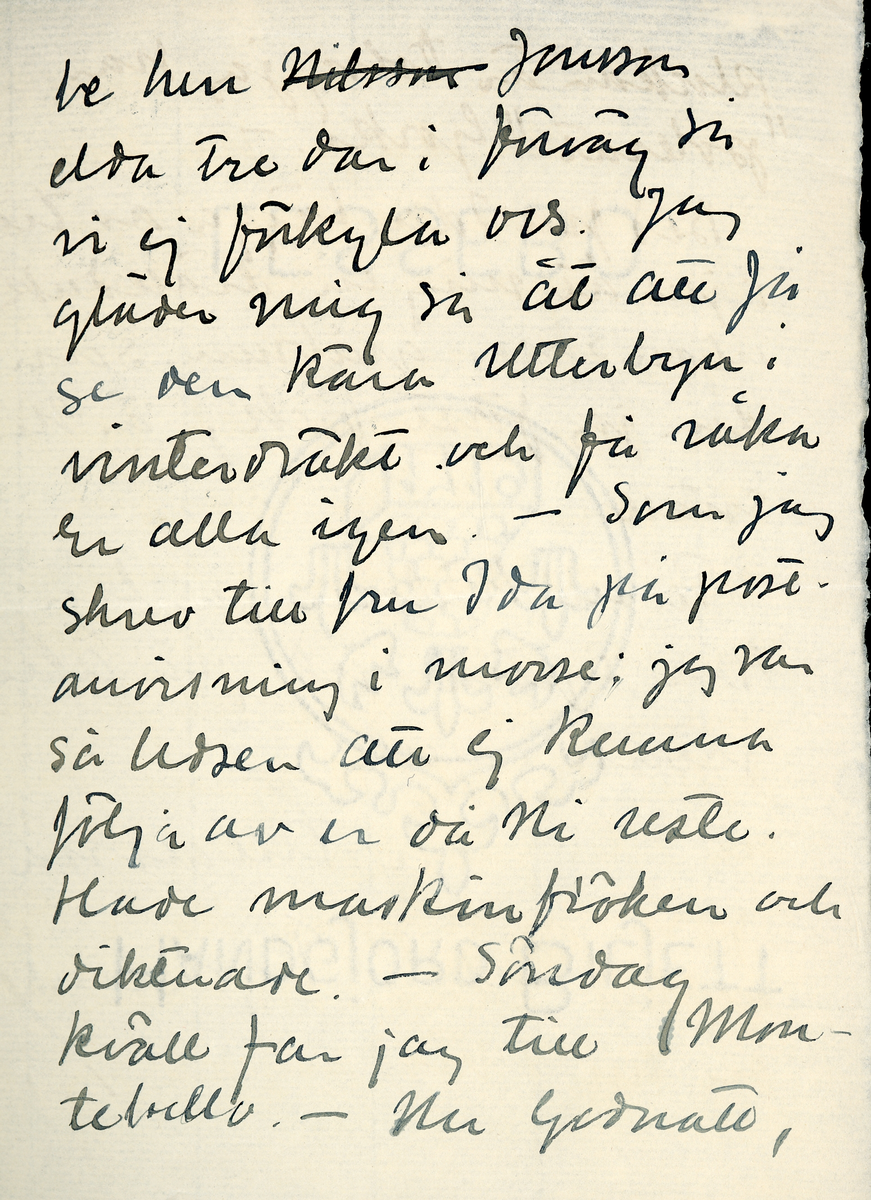 be herr ~~Nilsson~~ Jonsson
elda tre dar i förväg så
vi ej förkyla oss. Jag
gläder mig så åt att få
se den kära Utterbyn i
vinterdräkt och få råka
Er alla igen. – Som jag
skrev till fru Ida på post-
anvisning i morse; jag var
så ledsen att ej kunna
följa av er då Ni reste.
Hade maskinfröken och
dikterade. – Söndag
kväll far jag till Mon-
tebello. – Nu Godnatt,